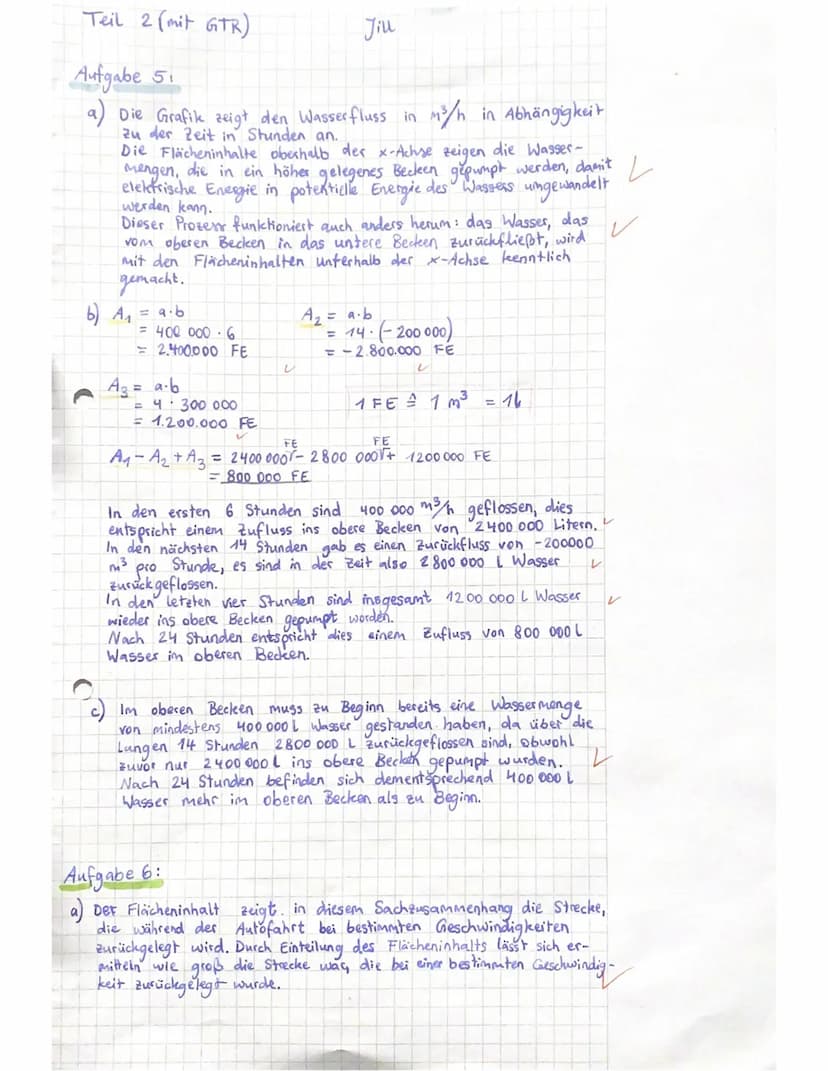 Teil 2 (mit GTR) Jill
Aufgabe 5:
a) Die Grafik zeigt den Wasserfluss in m³/h in Abhängigkeit
zu der Zeit in Stunden an.
Die Flächeninhalte oberhalb der x-Achse zeigen die Wasser-
mengen, die in ein höher gelegenes Becken gepumpt werden, damit
elektrische Energie in potentielle Energie des Wassers umgewandelt
werden kann.
Dieser Prozess funktioniert auch anders herum: das Wasser, das
vom oberen Becken in das untere Becken zurückfließt, wird
mit den Flächeninhalten unterhalb der x-Achse kenntlich
gemacht.
b) A₁ = a·b A₂ = a·b
= 400 000 · 6 = 14 · (-200 000)
= 2.400.000 FE = -2.800.000 FE
A₃ = a·b
= 4 · 300 000 1 FE ≙ 1 m³ = 1l
= 1.200.000 FE
A₁ - A₂ + A₃ = 2400 000 FE - 2800 000 FE + 1200 000 FE
= 800 000 FE
In den ersten 6 Stunden sind 400 000 m³/h geflossen, dies
entspricht einem Zufluss ins obere Becken von 2 400 000 Litern.
In den nächsten 14 Stunden gab es einen Zurückfluss von -200000
m³ pro Stunde, es sind in der Zeit also 2 800 000 l Wasser
zurückgeflossen.
In den letzten vier Stunden sind insgesamt 1200 000 l Wasser
wieder ins obere Becken gepumpt worden.
Nach 24 Stunden entspricht dies einem Zufluss von 800 000 l
Wasser im oberen Becken.
c) Im oberen Becken muss zu Beginn bereits eine Wassermenge
von mindestens 400 000 l Wasser gestanden haben, da über die
langen 14 Stunden 2800 000 l zurückgeflossen sind, obwohl
zuvor nur 2 400 000 l ins obere Becken gepumpt wurden.
Nach 24 Stunden befinden sich dementsprechend 400 000 l
Wasser mehr im oberen Becken als zu Beginn.
Aufgabe 6:
a) Der Flächeninhalt zeigt in diesem Sachzusammenhang die Strecke,
die während der Autofahrt bei bestimmten Geschwindigkeiten
zurückgelegt wird. Durch Einteilung des Flächeninhalts lässt sich er-
mitteln wie groß die Strecke war, die bei einer bestimmten Geschwindig-
keit zurückgelegt wurde.